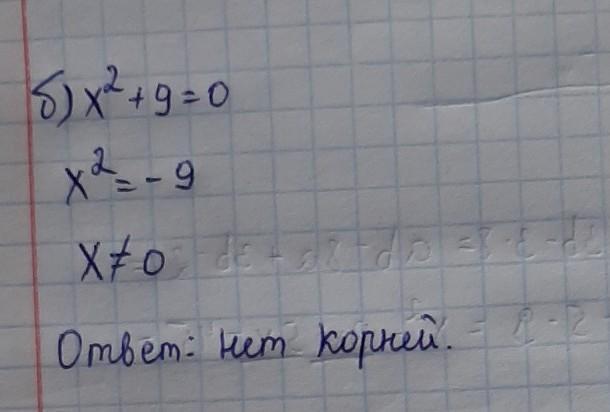 б) x² + 9 = 0
x² = - 9
x ≠ 0
Ответ: нет корней.